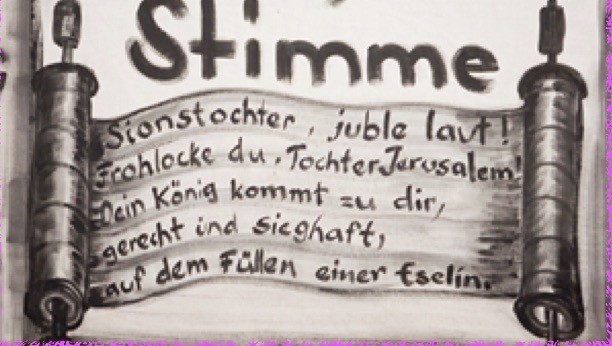 Stimme
Sionstochter, juble laut!
Frohlocke du, Tochter Jerusalem!
Dein König kommt zu dir,
gerecht ind sieghaft,
auf dem Füllen einer Eselin.